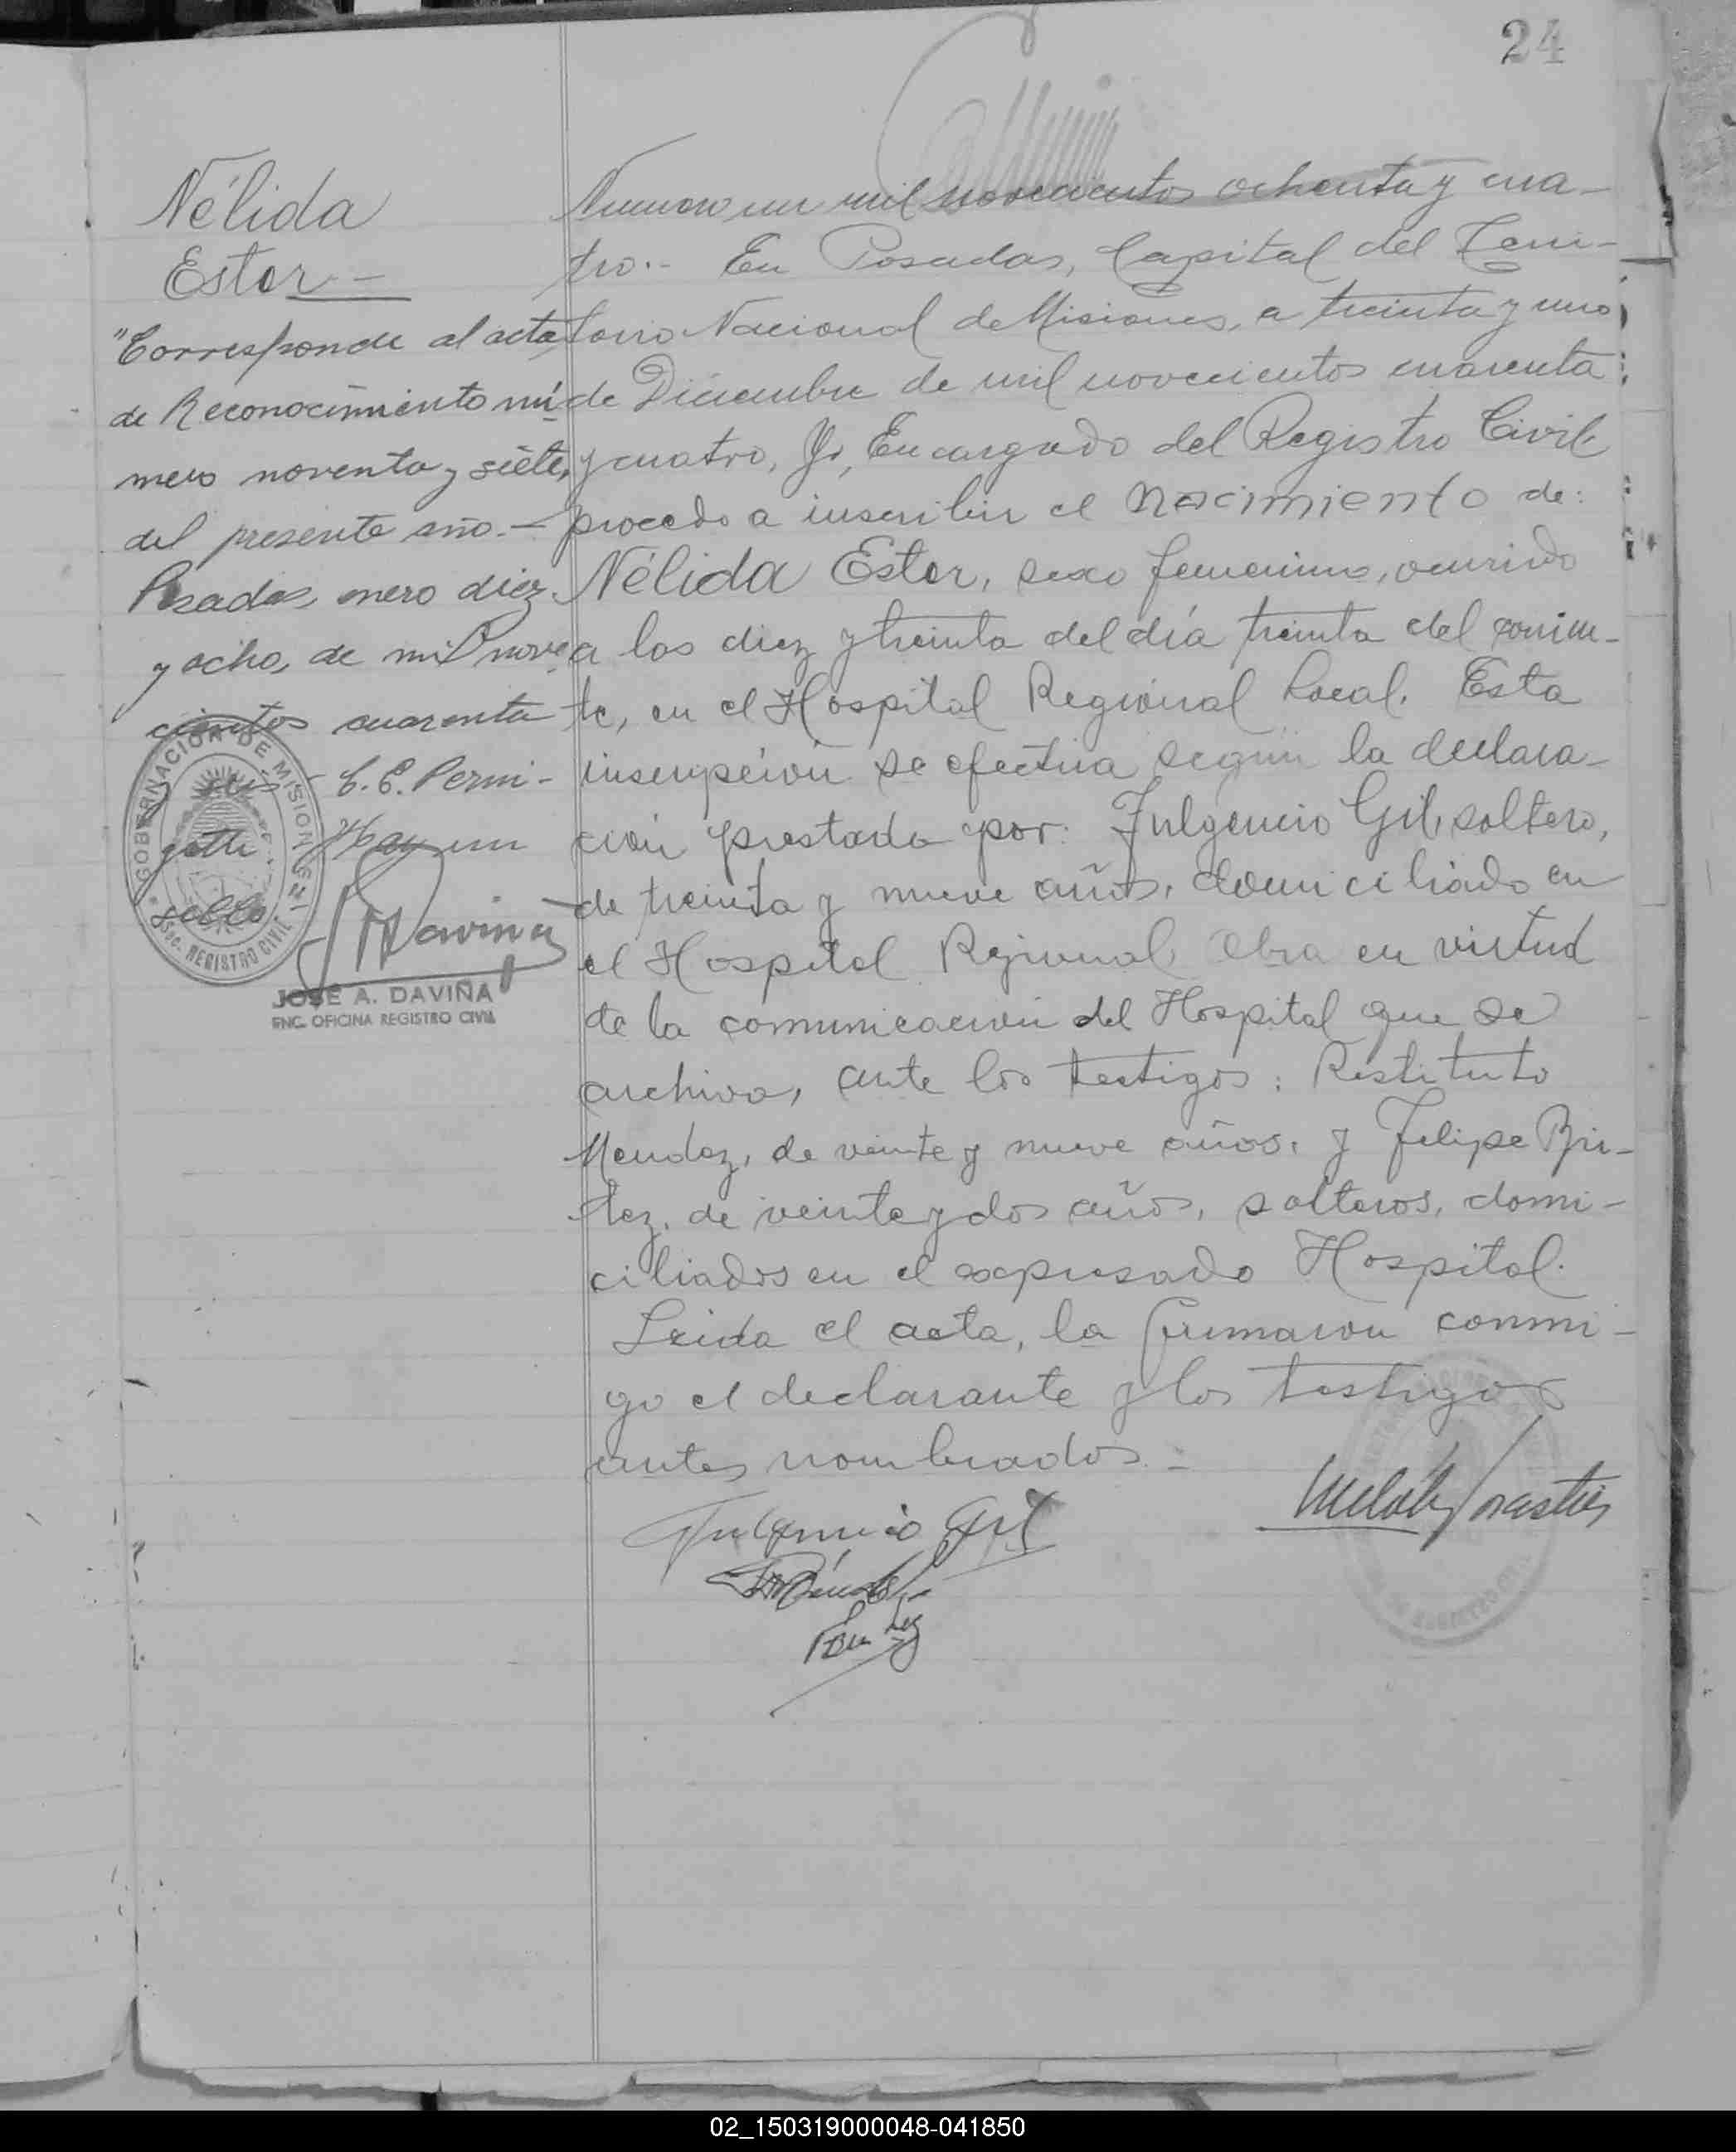 24
Nélida
Ester—
"Corresponde al acta
de Reconocimiento nú-
mero noventa y siete,
del presente año.—
Posadas, enero diez
y ocho, de mil nove-
cientos cuarenta
y seis - C. E. Perni-
gotti. Hay un
sello
GOBERNACION DE MISIONES
SEC. REGISTRO CIVIL
JOSÉ A. DAVIÑA
ENC. OFICINA REGISTRO CIVIL
Numero un mil novecientos ochenta y cua-
tro.- En Posadas, Capital del Terri-
torio Nacional de Misiones, a treinta y uno
de Diciembre de mil novecientos cuarenta
y cuatro, Yo, Encargado del Registro Civil
procedo a inscribir el Nacimiento de:
Nélida Ester, sexo femenino, ocurrido
a las diez y treinta del día treinta del corrien-
te, en el Hospital Regional local. Esta
inscripción se efectúa según la declara-
ción prestada por: Fulgencio Gil, soltero,
de treinta y nueve años, domiciliado en
el Hospital Regional. Obra en virtud
de la comunicación del Hospital que se
archiva, ante los testigos: Restituto
Mendez, de veinte y nueve años, y Felipe Bri-
tez, de veinte y dos años, solteros, domi-
ciliados en el expresado Hospital.
Leida el acta, la firmaron conmi-
go el declarante y los testigos
antes nombrados.-
Fulgencio Gil
02_150319000048-041850